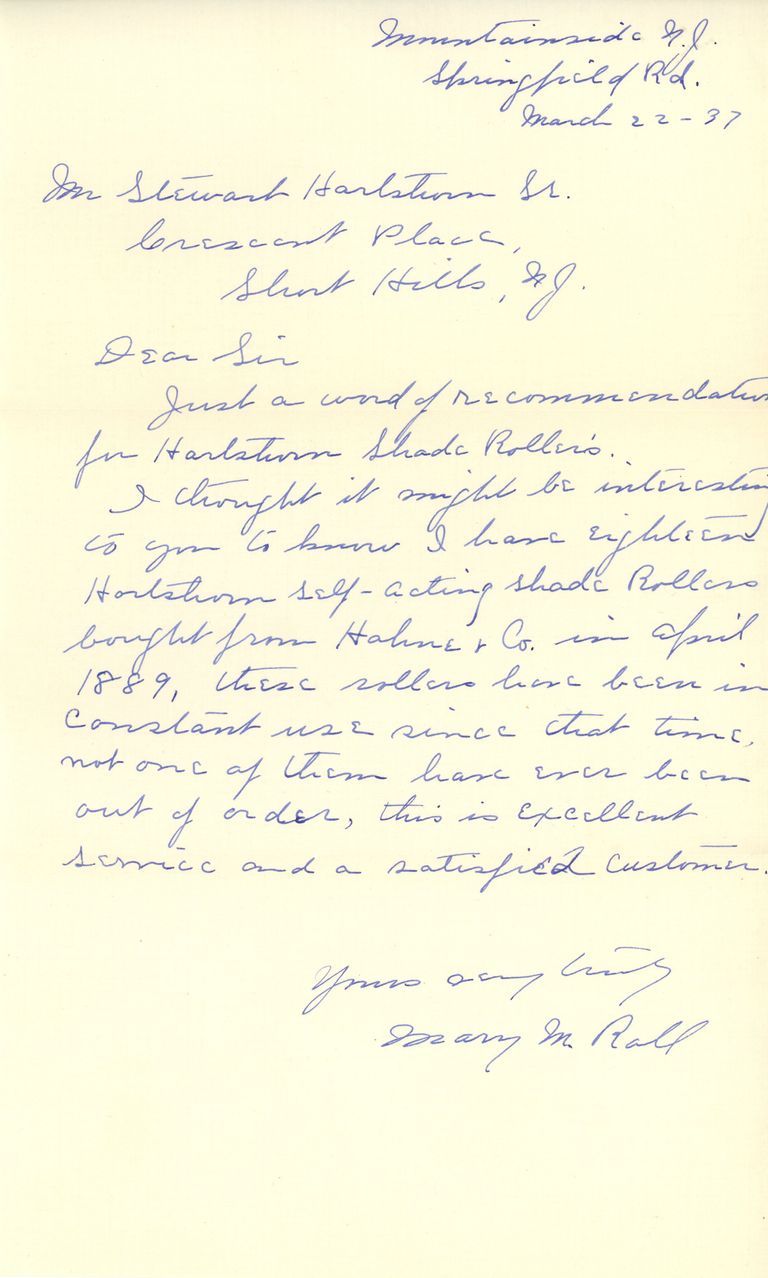 Mountainside N.J.
Springfield Rd.
March 22-37
Mr Stewart Hartshorn Sr.
Crescent Place,
Short Hills, N.J.
Dear Sir
Just a word of recommendation
for Hartshorn Shade Rollers.
I thought it might be interesting
to you to know I have eighteen
Hartshorn self-acting shade Rollers
bought from Hahne & Co. in april
1889, these rollers have been in
constant use since that time,
not one of them have ever been
out of order, this is excellent
service and a satisfied customer.
Yours very truly
Mary M. Roll